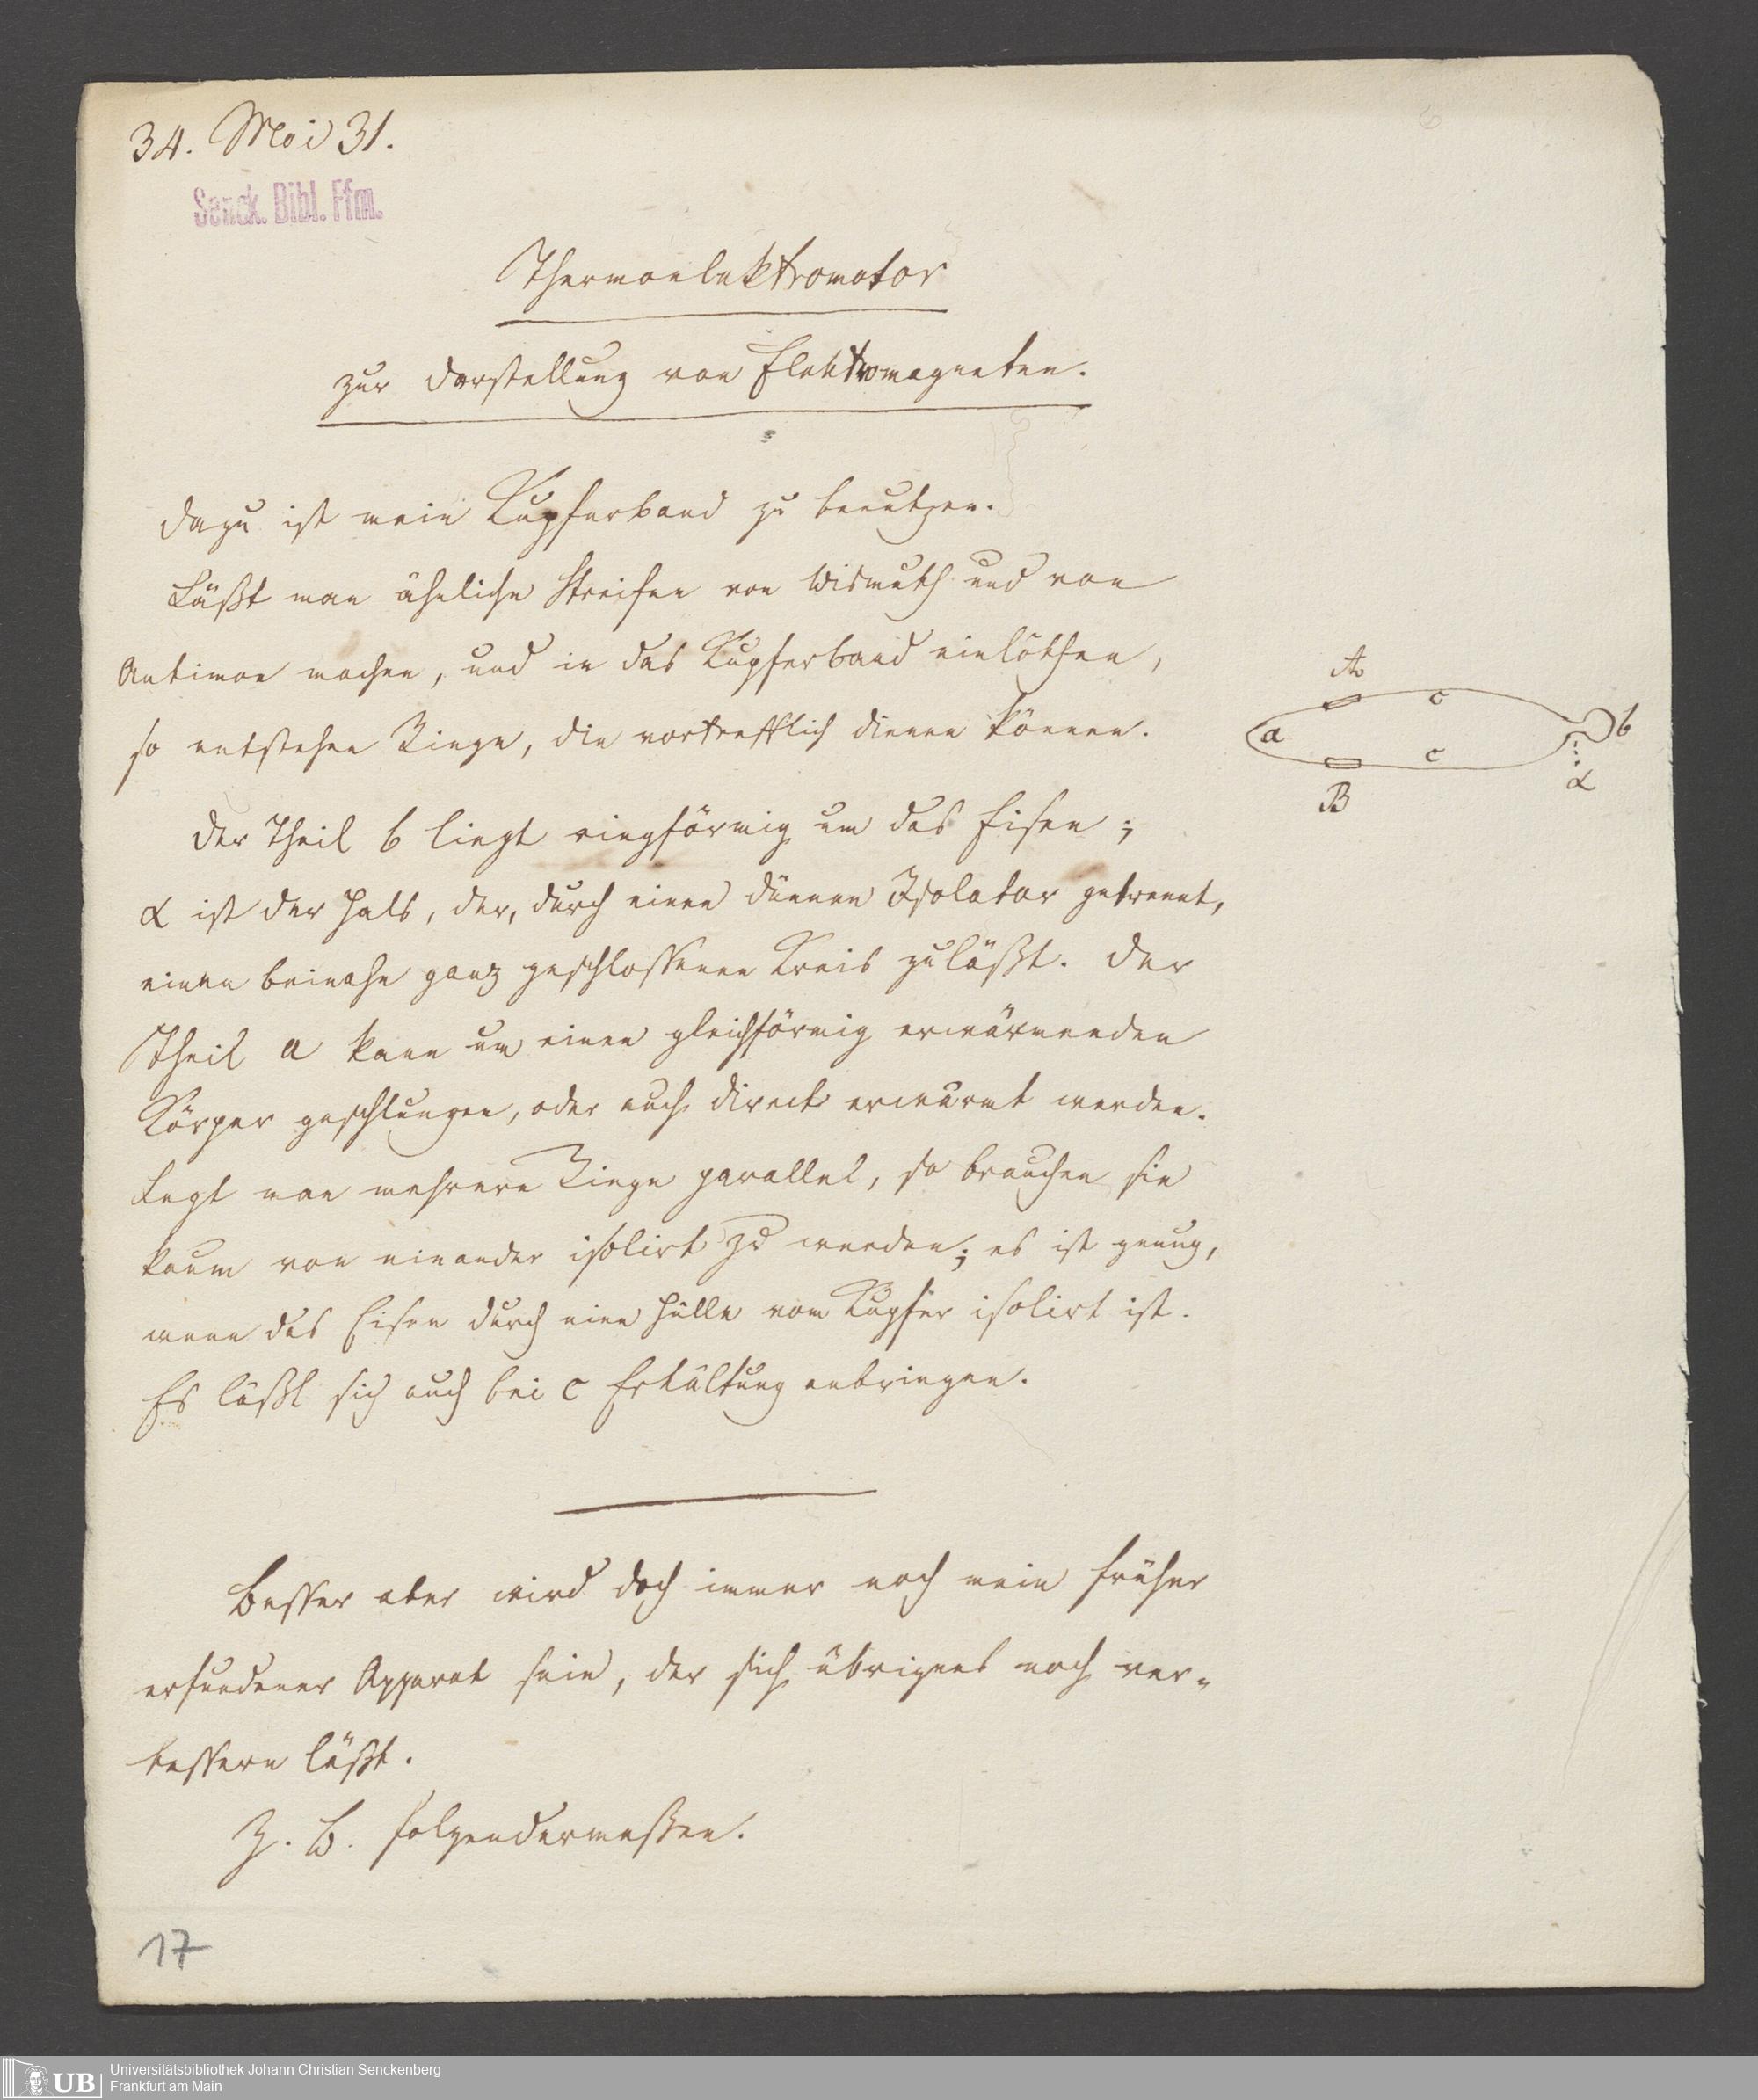 34. Mai 31.
Senck. Bibl. Ffm.
Thermoelektromotor
zur Darstellung von Elektromagneten.
Dazu ist mein Kupferband zu benutzen.
Läßt man ähnliche Streifen von Wismuth und von
Antimon machen, und in das Kupferband einlöthen,
so entstehen Ringe, die vortrefflich dienen können.
A
c
a
b
c
α
B
Der Theil b liegt ringförmig um das Eisen;
α ist der Hals, der, durch einen dünnen Isolator getrennt,
einen beinahe ganz geschlossenen Kreis zuläßt. Der
Theil a kann um einen gleichförmig erwärmenden
Körper geschlungen, oder auch direct erwärmt werden.
Legt man mehrere Ringe parallel, so brauchen sie
kaum von einander isolirt zu werden; es ist genug,
wenn das Eisen durch eine Hülle vom Kupfer isolirt ist.
Es läßt sich auch bei c Erkältung anbringen.
Besser aber wird doch immer noch mein früher
erfundener Apparat sein, der sich übrigens noch ver-
bessern läßt.
Z. B. folgendermaßen.
17
UB
Universitätsbibliothek Johann Christian Senckenberg
Frankfurt am Main